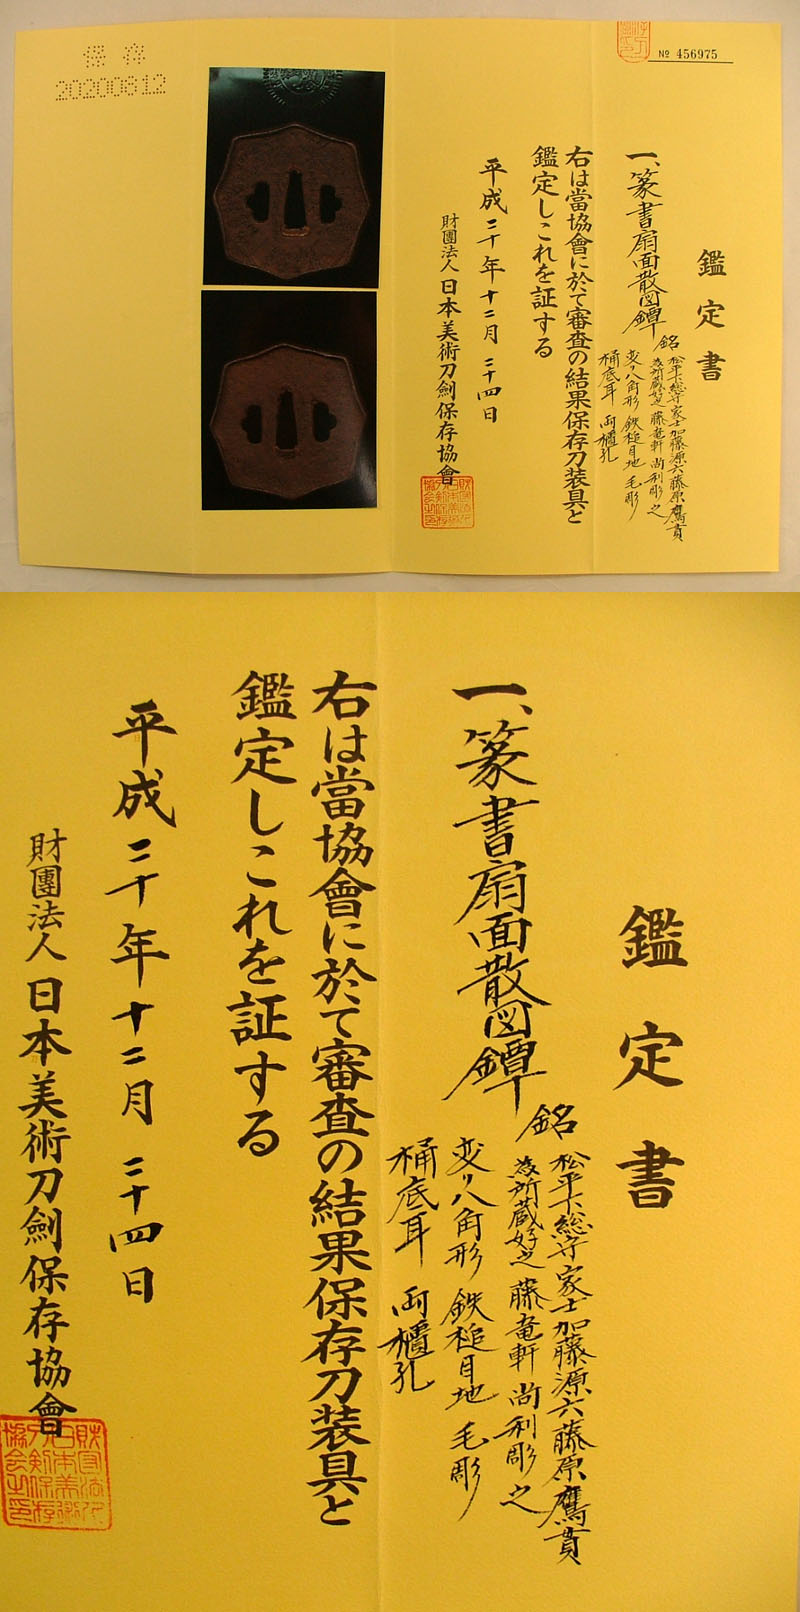 保存
20200812
№ 456975
鑑定書
一、篆書扇面散図鐔
銘 松平下総守家士加藤源六藤原鷹貫
為所蔵好之 藤竜軒 尚利彫之
変り八角形 鉄槌目地 毛彫
桶底耳 両櫃孔
右は當協會に於て審査の結果保存刀装具と
鑑定しこれを証する
平成二十年十二月二十四日
財團法人日本美術刀劍保存協會
鑑定書
一、篆書扇面散図鐔
銘 松平下総守家士加藤源六藤原鷹貫
為所蔵好之 藤竜軒 尚利彫之
変り八角形 鉄槌目地 毛彫
桶底耳 両櫃孔
右は當協會に於て審査の結果保存刀装具と
鑑定しこれを証する
平成二十年十二月二十四日
財團法人日本美術刀劍保存協會